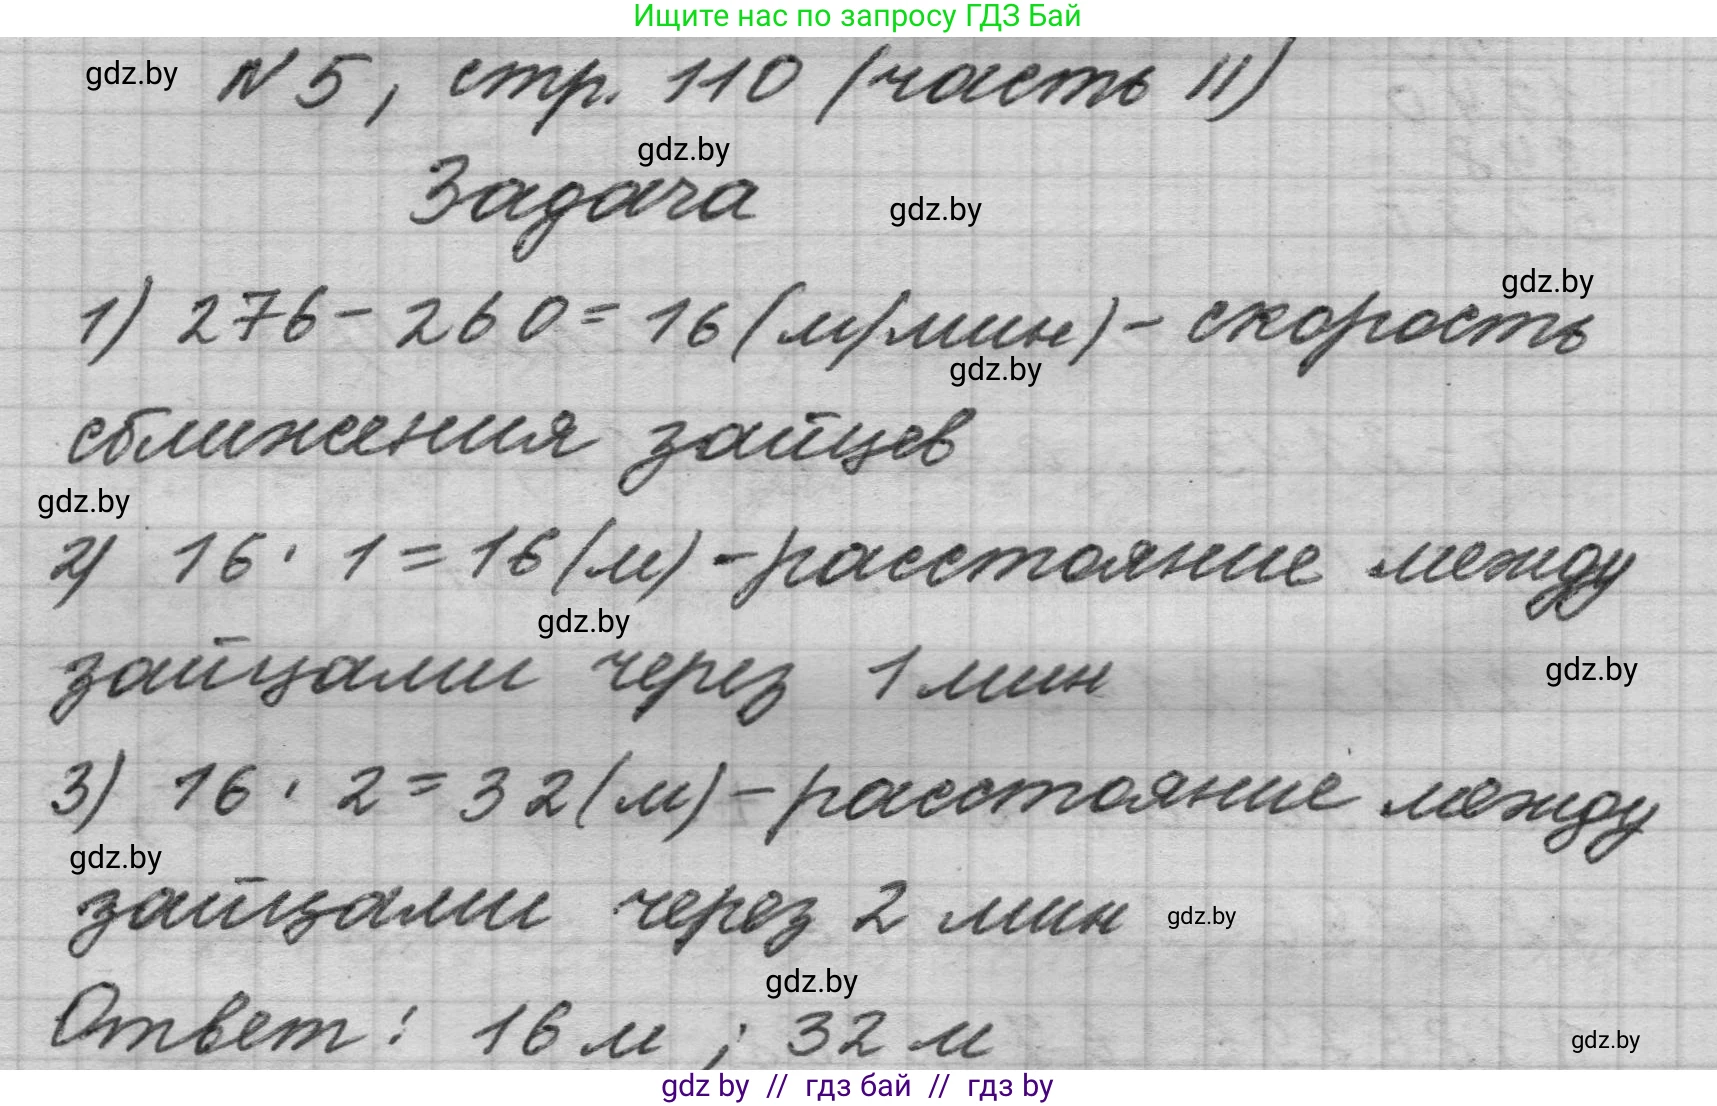 Ищите нас по запросу ГДЗ Бай
gdz.by
№ 5, стр. 110 (часть II)
gdz.by
Задача
gdz.by
gdz.by
1) 276 - 260 = 16 (м/мин) - скорость
gdz.by
сближения зайцев
gdz.by
2) 16 · 1 = 16 (м) - расстояние между
gdz.by
зайцами через 1 мин
gdz.by
3) 16 · 2 = 32 (м) - расстояние между
gdz.by
зайцами через 2 мин
gdz.by
gdz.by
Ответ: 16 м ; 32 м
gdz.by
gdz by // гдз бай // гдз by